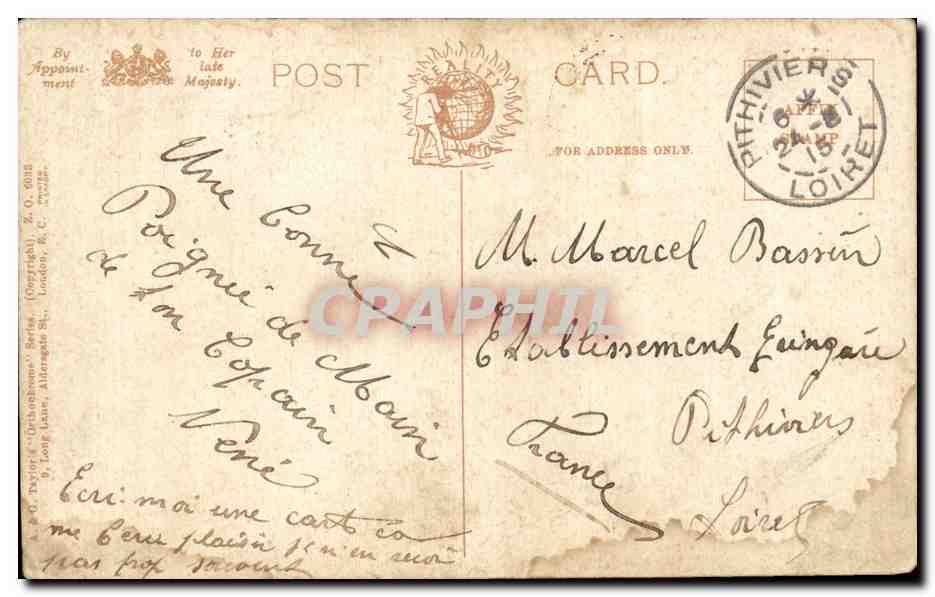 By
Appoint-
ment
to Her
late
Majesty.
POST
CARD.
REALITY
FOR ADDRESS ONLY.
AFFIX
STAMP
PITHIVIERS
LOIRET
24 - 2
15
Une bonne
Poignée de Main
de ton Copain
René
Ecri-moi une carte ca
me plaisir
pas trop souvent
M. Marcel
Etablissement
Pithiviers
Loiret
France
A. & G. Taylor's "Orthochrome" Series. (Copyright). Z. O. 6033
9, Long Lane, Aldersgate St., London, E. C.
CPAPHIL